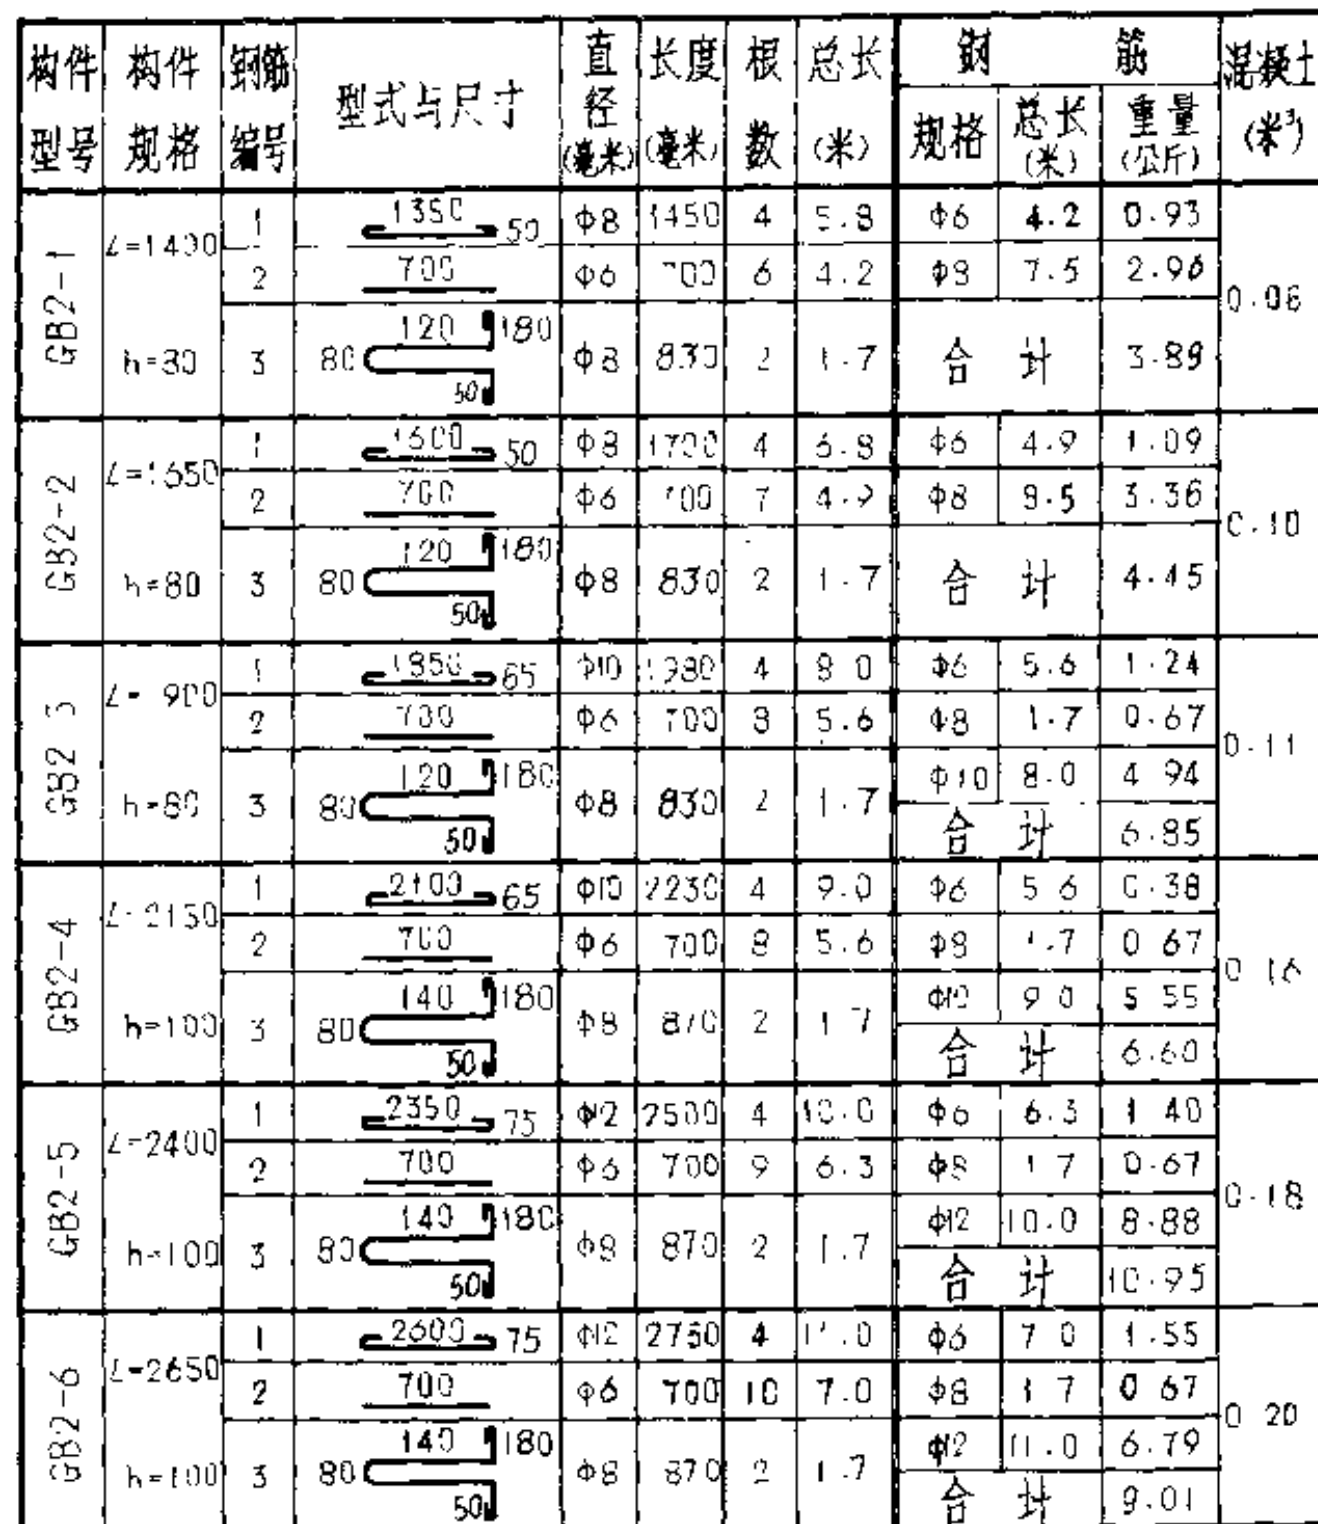 构件型号 构件规格 钢筋编号 型式与尺寸 直径(毫米) 长度(毫米) 根数 总长(米) 钢筋 混凝土(米³)
规格 总长(米) 重量(公斤)
GB2-1 L=1400 1 1350 50 Φ8 1450 4 5.8 Φ6 4.2 0.93
2 700 Φ6 700 6 4.2 Φ8 7.5 2.96 0.08
h=80 3 80 120 180 50 Φ8 830 2 1.7 合计 3.89
GB2-2 L=1650 1 1600 50 Φ8 1700 4 6.8 Φ6 4.9 1.09
2 700 Φ6 700 7 4.9 Φ8 8.5 3.36 0.10
h=80 3 80 120 180 50 Φ8 830 2 1.7 合计 4.45
GB2 3 L= 900 1 1850 65 Φ10 1980 4 8 0 Φ6 5.6 1.24
2 700 Φ6 700 8 5.6 Φ8 1.7 0.67 0.11
h=80 3 80 120 180 50 Φ8 830 2 1.7 Φ10 8.0 4 94
合计 6.85
GB2-4 L=2150 1 2100 65 Φ10 2230 4 9.0 Φ6 5 6 0.38
2 700 Φ6 700 8 5.6 Φ8 1.7 0 67 0 16
h=100 3 80 140 180 50 Φ8 870 2 1 7 Φ10 9 0 5 55
合计 6.60
GB2-5 L=2400 1 2350 75 Φ12 2500 4 10.0 Φ6 6.3 1 40
2 700 Φ6 700 9 6.3 Φ8 1 7 0.67 0.18
h=100 3 80 140 180 50 Φ8 870 2 1.7 Φ12 10.0 8.88
合计 10.95
GB2-6 L=2650 1 2600 75 Φ12 2750 4 11.0 Φ6 7 0 1.55
2 700 Φ6 700 10 7.0 Φ8 1 7 0 67 0 20
h=100 3 80 140 180 50 Φ8 870 2 1.7 Φ12 11.0 6.79
合计 9.01